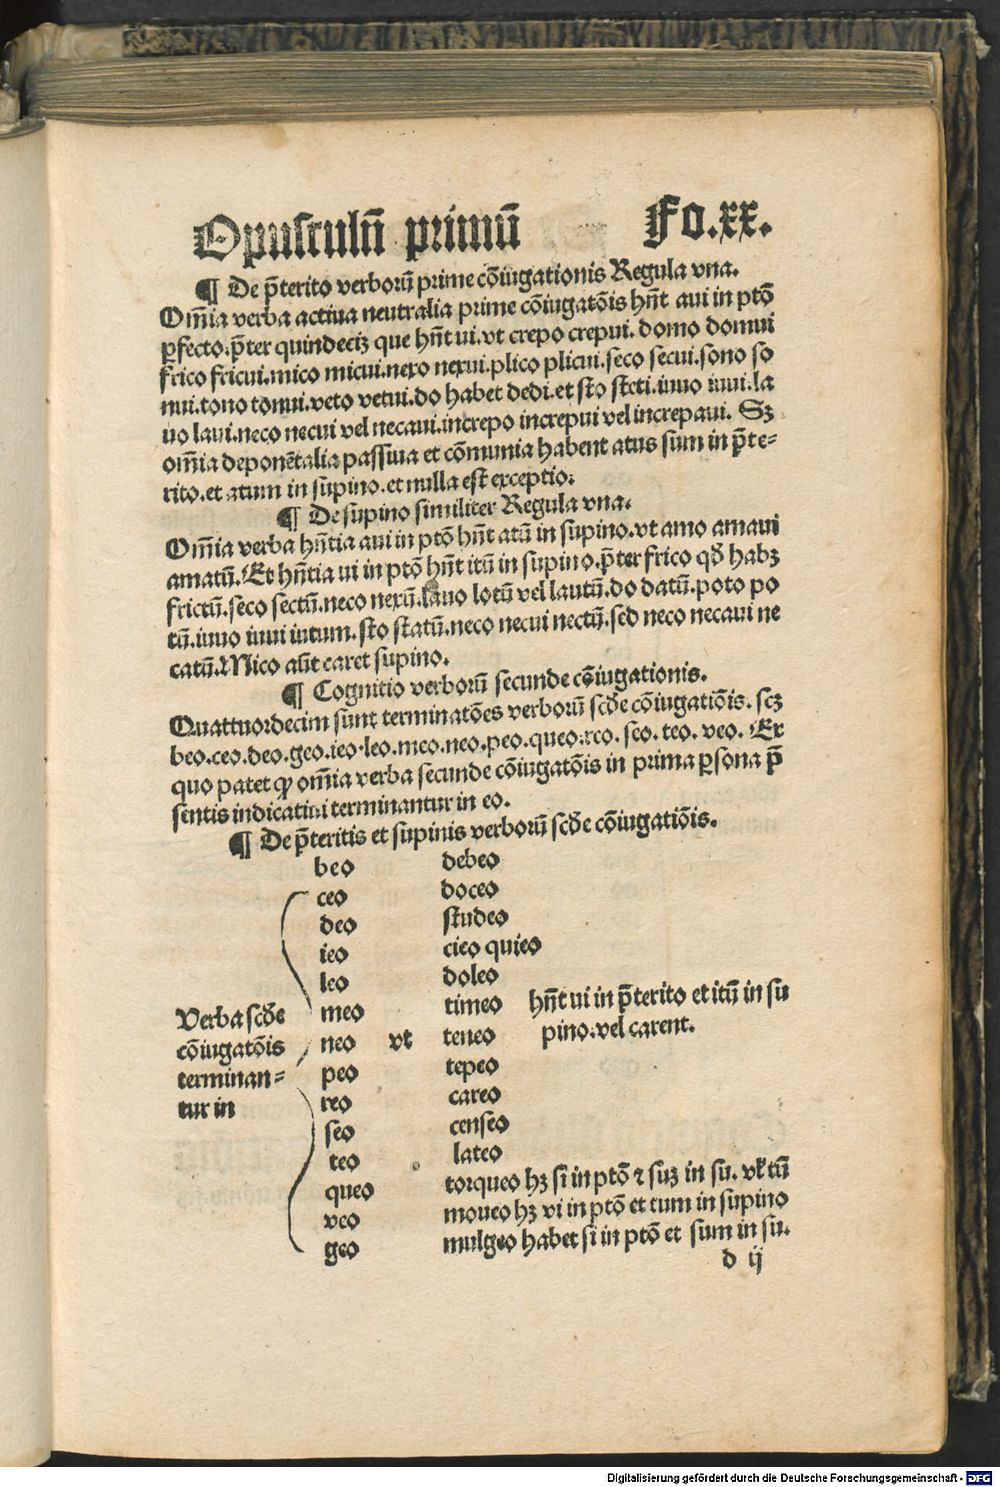 Opusculū primū Fo.xx.
¶ De p̄terito verborū prime cōiugationis Regula vna.
Om̄ia verba actiua neutralia prime cōiugatōis hn̄t aui in ptō
ꝑfecto.p̄ter quindeciꝫ que hn̄t ui.vt crepo crepui.domo domui
frico fricui.mico micui.nexo nexui.plico plicui.seco secui.sono so
nui.tono tonui.veto vetui.do habet dedi.et sto steti.iuuo iuui.la
uo laui.neco necui vel necaui.increpo increpui vel increpaui. Sꝫ
om̄ia deponētalia passiua et cōmunia habent atus sum in p̄te-
rito.et atum in supino.et nulla est exceptio.
¶ De supino similiter Regula vna.
Om̄ia verba hn̄tia aui in ptō hn̄t atū in supino.vt amo amaui
amatū.Et hn̄tia ui in ptō hn̄t itū in supino.p̄ter frico qď habꝫ
frictū.seco sectū.neco nexū.lauo lotū vel lautū.do datū.poto po
tū.iuuo iuui iutum.sto statū.neco necui nectū.sed neco necaui ne
catū.Mico aūt caret supino.
¶ Cognitio verborū secunde cōiugationis.
Quattuordecim sunt terminatōes verborū scďe cōiugatiōis. scꝫ
beo.ceo.deo.geo.ieo.leo.meo.neo.peo.queo.reo. seo. teo. veo. Ex
quo patet ꝙ om̄ia verba secunde cōiugatōis in prima ꝑsona p̄
sentis indicatiui terminantur in eo.
¶ De p̄teritis et supinis verborū scďe cōiugatiōis.
beo debeo
ceo doceo
deo studeo
ieo cieo quieo
leo doleo
Verba scďe meo timeo hn̄t ui in p̄terito et itū in su
cōiugatōis neo vt teneo pino.vel carent.
terminan- peo tepeo
tur in reo careo
seo censeo
teo lateo
queo torqueo hꝫ si in ptō ⁊ suꝫ in su. vl' tū
veo moueo hꝫ vi in ptō et tum in supino
geo mulgeo habet si in ptō et sum in su.
d ij
Digitalisierung gefördert durch die Deutsche Forschungsgemeinschaft - DFG